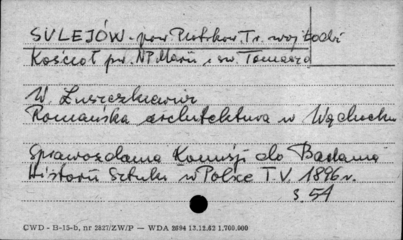 SULEJÓW - pow. Piotrków Tr. woj. Łódź
Kościół pw. NP Marii i św. Tomasza
W. Łuszczkiewicz
Romańska architektura w Wąchocku
Sprawozdania Komisji do Badania
Historii Sztuki w Polsce T. V. 1896 r.
s. 54
CWD - B-13-b, nr 2827/ZW/P — WDA 2694 13.12.62 1.700.000